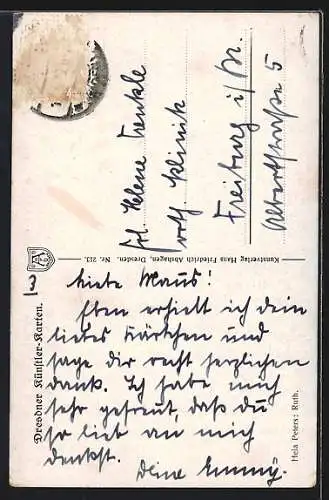 Dresdner Künstler-Karten.
Hela Peters: Ruth.
Kunstverlag Hans Friedrich Abshagen, Dresden. Nr. 213.
3
Liebe Maus!
Eben erhielt ich dein
liebes Kärtchen und
sage dir recht herzlichen
Dank. Ich habe mich
sehr gefreut, daß du
so lieb an mich
denkst.
Deine Emmy.
Frl. Helene Trenkle
Klinik
Freiburg i/Br.
Albertstraße 5